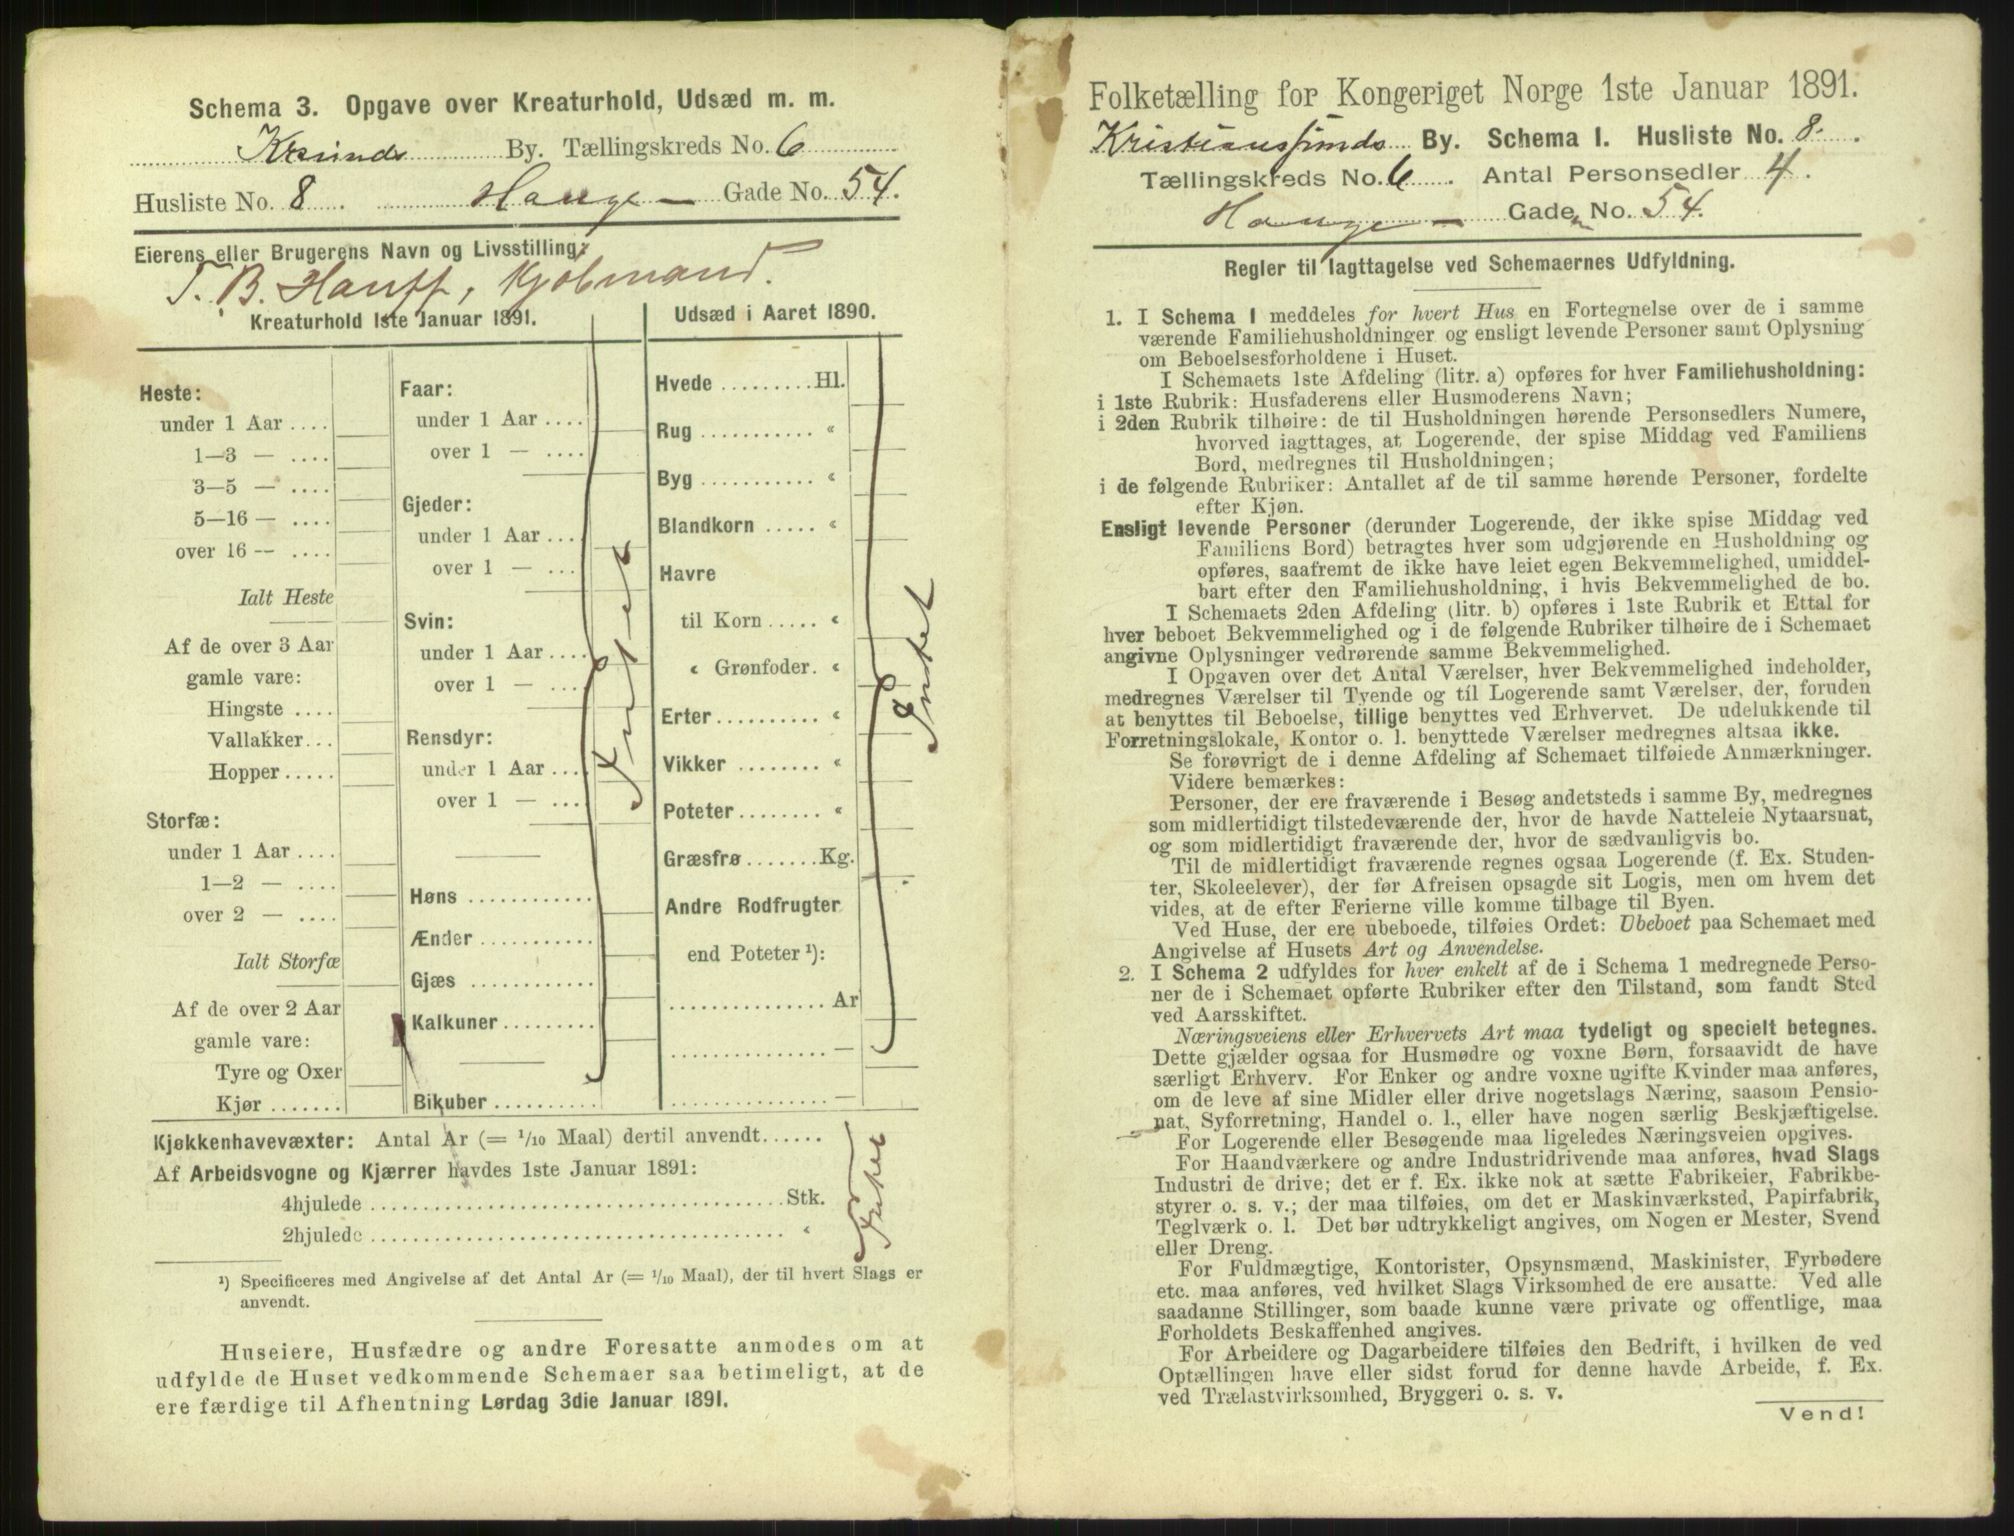 Schema 3. Opgave over Kreaturhold, Udsæd m. m.
Krsunds By. Tællingskreds No. 6
Husliste No. 8. Hauge- Gade No. 54.
Eierens eller Brugerens Navn og Livsstilling:
T. B. Hanff, Kjøbmand.
Kreaturhold 1ste Januar 1891.
Heste:
under 1 Aar ....
1—3 — ....
3—5 — ....
5—16 — ....
over 16 — ....
Ialt Heste
Af de over 3 Aar
gamle vare:
Hingste ....
Vallakker...
Hopper.....
Storfæ:
under 1 Aar ....
1—2 — ....
over 2 — ....
Ialt Storfæ
Af de over 2 Aar
gamle vare:
Tyre og Oxer
Kjør .......
Faar:
under 1 Aar ....
over 1 — ....
Gjeder:
under 1 Aar ...
over 1 — ...
Svin:
under 1 Aar ....
over 1 — ....
Rensdyr:
under 1 Aar ....
over 1 — ....
Høns ............
Ænder...........
Gjæs ............
Kalkuner.........
Bikuber ..........
Intet
Udsæd i Aaret 1890.
Hvede .........Hl.
Rug ........... «
Byg ........... «
Blandkorn ..... «
Havre
til Korn ..... «
« Grønfoder. «
Erter.......... «
Vikker ........ «
Poteter........ «
Græsfrø.......Kg.
Andre Rodfrugter
end Poteter ¹):
............... Ar
............... —
............... —
Intet
Kjøkkenhavevæxter: Antal Ar (= 1/10 Maal) dertil anvendt......
Af Arbeidsvogne og Kjærrer havdes 1ste Januar 1891:
4hjulede ........................................Stk.
2hjulede ........................................ «
Intet
¹) Specificeres med Angivelse af det Antal Ar (= 1/10 Maal), der til hvert Slags er
anvendt.
Huseiere, Husfædre og andre Foresatte anmodes om at
udfylde de Huset vedkommende Schemaer saa betimeligt, at de
ere færdige til Afhentning Lørdag 3die Januar 1891.
Folketælling for Kongeriget Norge 1ste Januar 1891.
Kristianssunds By. Schema I. Husliste No. 8.
Tællingskreds No. 6. Antal Personsedler 4.
Hauge- Gaden No. 54.
Regler til Iagttagelse ved Schemaernes Udfyldning.
1. I Schema 1 meddeles for hvert Hus en Fortegnelse over de i samme
værende Familiehusholdninger og ensligt levende Personer samt Oplysning
om Beboelsesforholdene i Huset.
I Schemaets 1ste Afdeling (litr. a) opføres for hver Familiehusholdning:
i 1ste Rubrik: Husfaderens eller Husmoderens Navn;
i 2den Rubrik tilhøire: de til Husholdningen hørende Personsedlers Numere,
hvorved iagttages, at Logerende, der spise Middag ved Familiens
Bord, medregnes til Husholdningen;
i de følgende Rubriker: Antallet af de til samme hørende Personer, fordelte
efter Kjøn.
Ensligt levende Personer (derunder Logerende, der ikke spise Middag ved
Familiens Bord) betragtes hver som udgjørende en Husholdning og
opføres, saafremt de ikke have leiet egen Bekvemmelighed, umiddel-
bart efter den Familiehusholdning, i hvis Bekvemmelighed de bo.
I Schemaets 2den Afdeling (litr. b) opføres i 1ste Rubrik et Ettal for
hver beboet Bekvemmelighed og i de følgende Rubriker tilhøire de i Schemaet
angivne Oplysninger vedrørende samme Bekvemmelighed.
I Opgaven over det Antal Værelser, hver Bekvemmelighed indeholder,
medregnes Værelser til Tyende og til Logerende samt Værelser, der, foruden
at benyttes til Beboelse, tillige benyttes ved Erhvervet. De udelukkende til
Forretningslokale, Kontor o. l. benyttede Værelser medregnes altsaa ikke.
Se forøvrigt de i denne Afdeling af Schemaet tilføiede Anmærkninger.
Videre bemærkes:
Personer, der ere fraværende i Besøg andetsteds i samme By, medregnes
som midlertidigt tilstedeværende der, hvor de havde Natteleie Nytaarsnat,
og som midlertidigt fraværende der, hvor de sædvanligvis bo.
Til de midlertidigt fraværende regnes ogsaa Logerende (f. Ex. Studen-
ter, Skoleelever), der før Afreisen opsagde sit Logis, men om hvem det
vides, at de efter Ferierne ville komme tilbage til Byen.
Ved Huse, der ere ubeboede, tilføies Ordet: Ubeboet paa Schemaet med
Angivelse af Husets Art og Anvendelse.
2. I Schema 2 udfyldes for hver enkelt af de i Schema 1 medregnede Perso-
ner de i Schemaet opførte Rubriker efter den Tilstand, som fandt Sted
ved Aarsskiftet.
Næringsveiens eller Erhvervets Art maa tydeligt og specielt betegnes.
Dette gjælder ogsaa for Husmødre og voxne Børn, forsaavidt de have
særligt Erhverv. For Enker og andre voxne ugifte Kvinder maa anføres,
om de leve af sine Midler eller drive nogetslags Næring, saasom Pensio-
nat, Syforretning, Handel o. l., eller have nogen særlig Beskjæftigelse.
For Logerende eller Besøgende maa ligeledes Næringsveien opgives.
For Haandværkere og andre Industridrivende maa anføres, hvad Slags
Industri de drive; det er f. Ex. ikke nok at sætte Fabrikeier, Fabrikbe-
styrer o. s. v.; der maa tilføies, om det er Maskinværksted, Papirfabrik,
Teglværk o. l. Det bør udtrykkeligt angives, om Nogen er Mester, Svend
eller Dreng.
For Fuldmægtige, Kontorister, Opsynsmænd, Maskinister, Fyrbødere
etc. maa anføres, ved hvilket Slags Virksomhed de ere ansatte. Ved alle
saadanne Stillinger, som baade kunne være private og offentlige, maa
Forholdets Beskaffenhed angives.
For Arbeidere og Dagarbeidere tilføies den Bedrift, i hvilken de ved
Optællingen have eller sidst forud for denne havde Arbeide, f. Ex.
ved Trælastvirksomhed, Bryggeri o. s. v.
Vend!